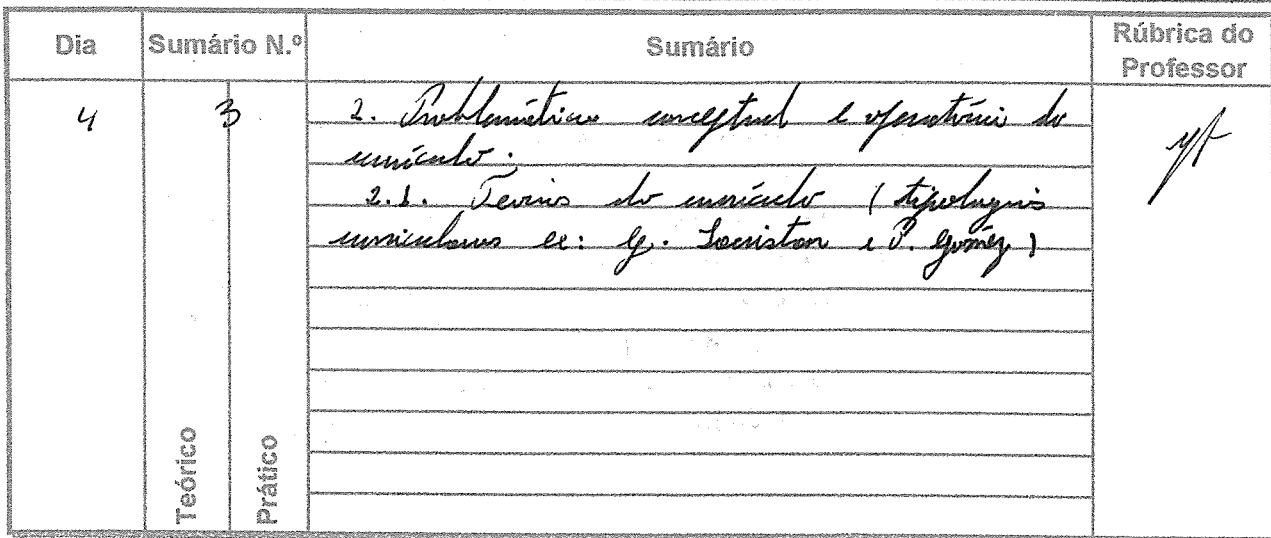 Dia Sumário N.º Sumário Rúbrica do Professor
4 3 2. Problemática conceptual e operatória do
currículo.
2.1. Teorias do currículo (tipologias
curriculares ex: G. Sacristan e P. Goméz)
Teórico Prático